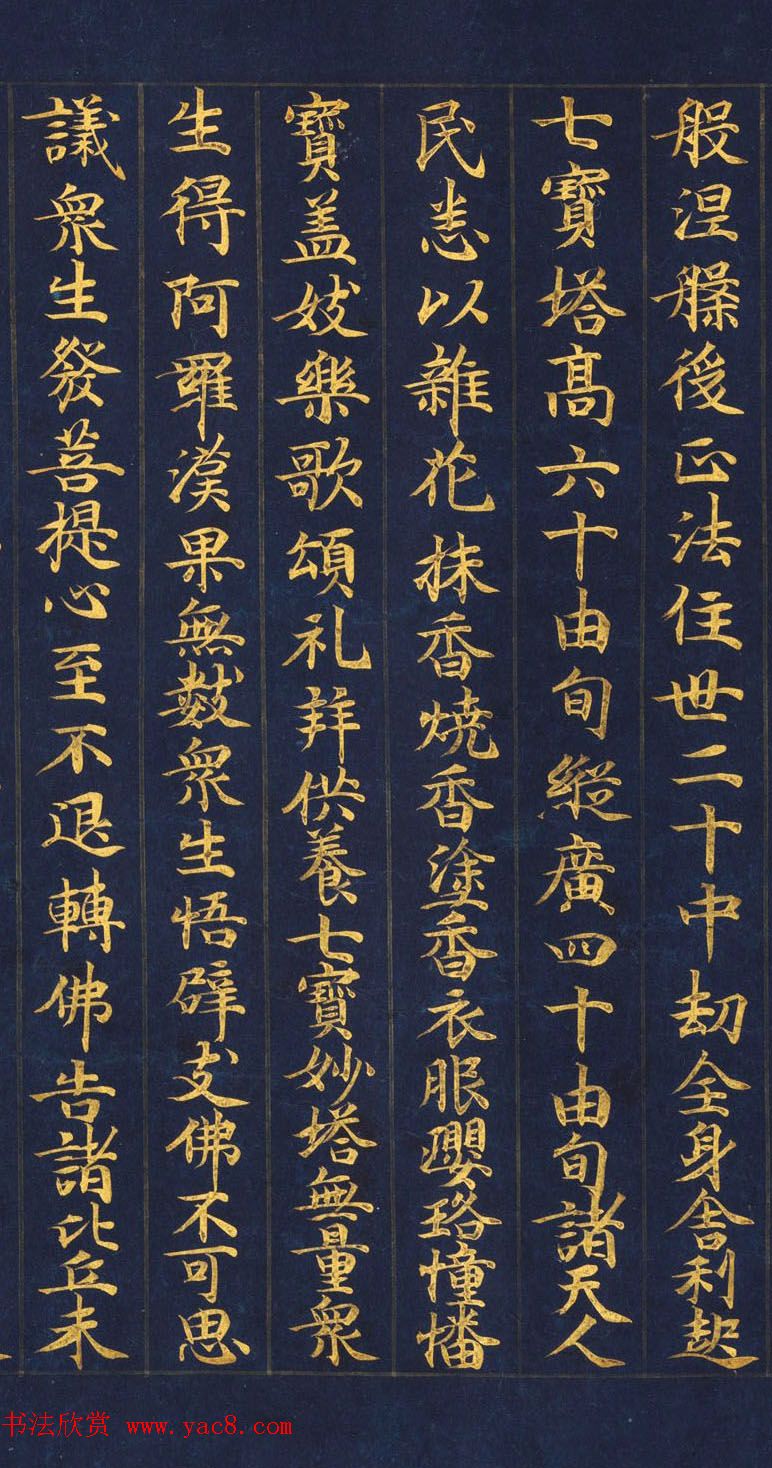 般涅槃後正法住世二十中劫全身舍利起
七寶塔高六十由旬縱廣四十由旬諸天人
民悉以雜花抹香燒香塗香衣服瓔珞幢幡
寶盖妓樂歌頌礼拜供養七寶妙塔無量衆
生得阿羅漢果無數衆生悟辟支佛不可思
議衆生發菩提心至不退轉佛告諸比丘未
书法欣赏 www.yac8.com